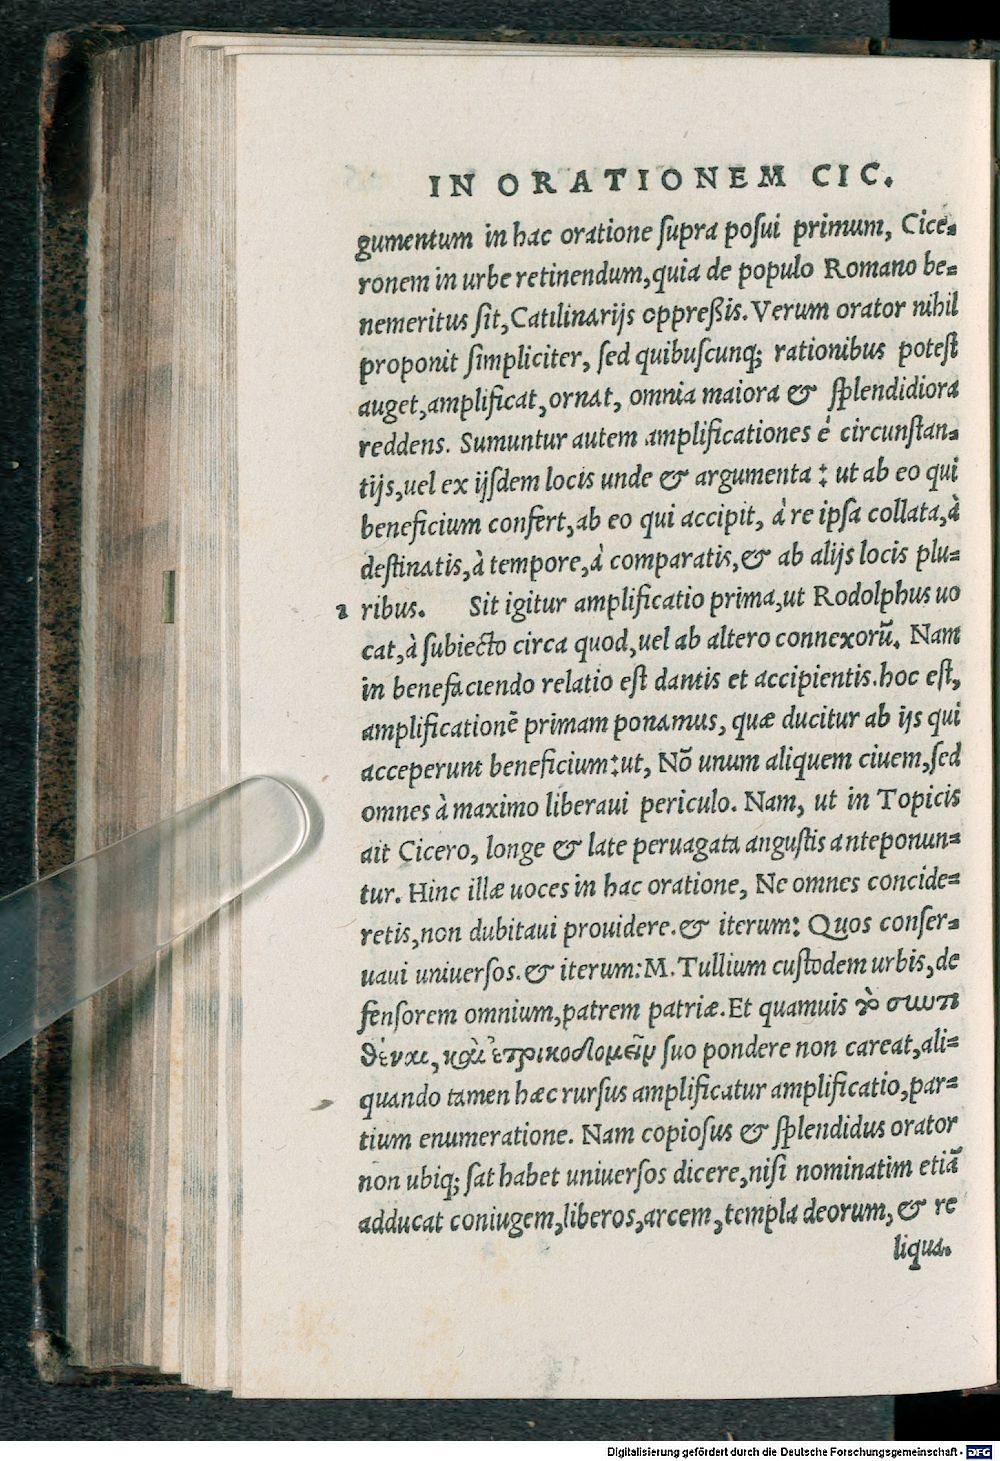 IN ORATIONEM CIC.
gumentum in hac oratione ſupra poſui primum, Cice⸗
ronem in urbe retinendum,quia de populo Romano be⸗
nemeritus ſit,Catilinarijs oppreßis.Verum orator nihil
proponit ſimpliciter, ſed quibuſcunq; rationibus poteſt
auget,amplificat,ornat, omnia maiora & ſplendidiora
reddens. Sumuntur autem amplificationes è circunſtan⸗
tijs,uel ex ijſdem locis unde & argumenta : ut ab eo qui
beneficium confert,ab eo qui accipit, à re ipſa collata,à
deſtinatis,à tempore,à comparatis,& ab alijs locis plu⸗
2 ribus. Sit igitur amplificatio prima,ut Rodolphus uo
cat,à ſubiecto circa quod,uel ab altero connexorũ. Nam
in benefaciendo relatio eſt dantis et accipientis.hoc eſt,
amplificationẽ primam ponamus, quæ ducitur ab ijs qui
acceperunt beneficium:ut, Nõ unum aliquem ciuem,ſed
omnes à maximo liberaui periculo. Nam, ut in Topicis
ait Cicero, longe & late peruagata anguſtis anteponun⸗
tur. Hinc illæ uoces in hac oratione, Ne omnes concide⸗
retis,non dubitaui prouidere.& iterum: Quos conſer⸗
uaui uniuerſos.& iterum:M.Tullium cuſtodem urbis,de
fenſorem omnium,patrem patriæ.Et quamuis
ſuo pondere non careat,ali⸗
quando tamen hæc rurſus amplificatur amplificatio,par⸗
tium enumeratione. Nam copioſus & ſplendidus orator
non ubiq; ſat habet uniuerſos dicere,niſi nominatim etiã
adducat coniugem,liberos,arcem,templa deorum,& re
liqua.
Digitalisierung gefördert durch die Deutsche Forschungsgemeinschaft - DFG